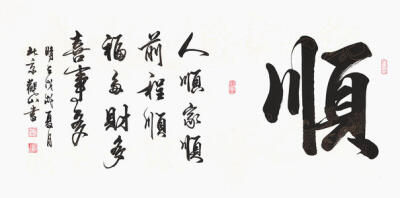 順
人順家順
前程順
福多財多
喜事多
時在戊戌夏月
北京
書